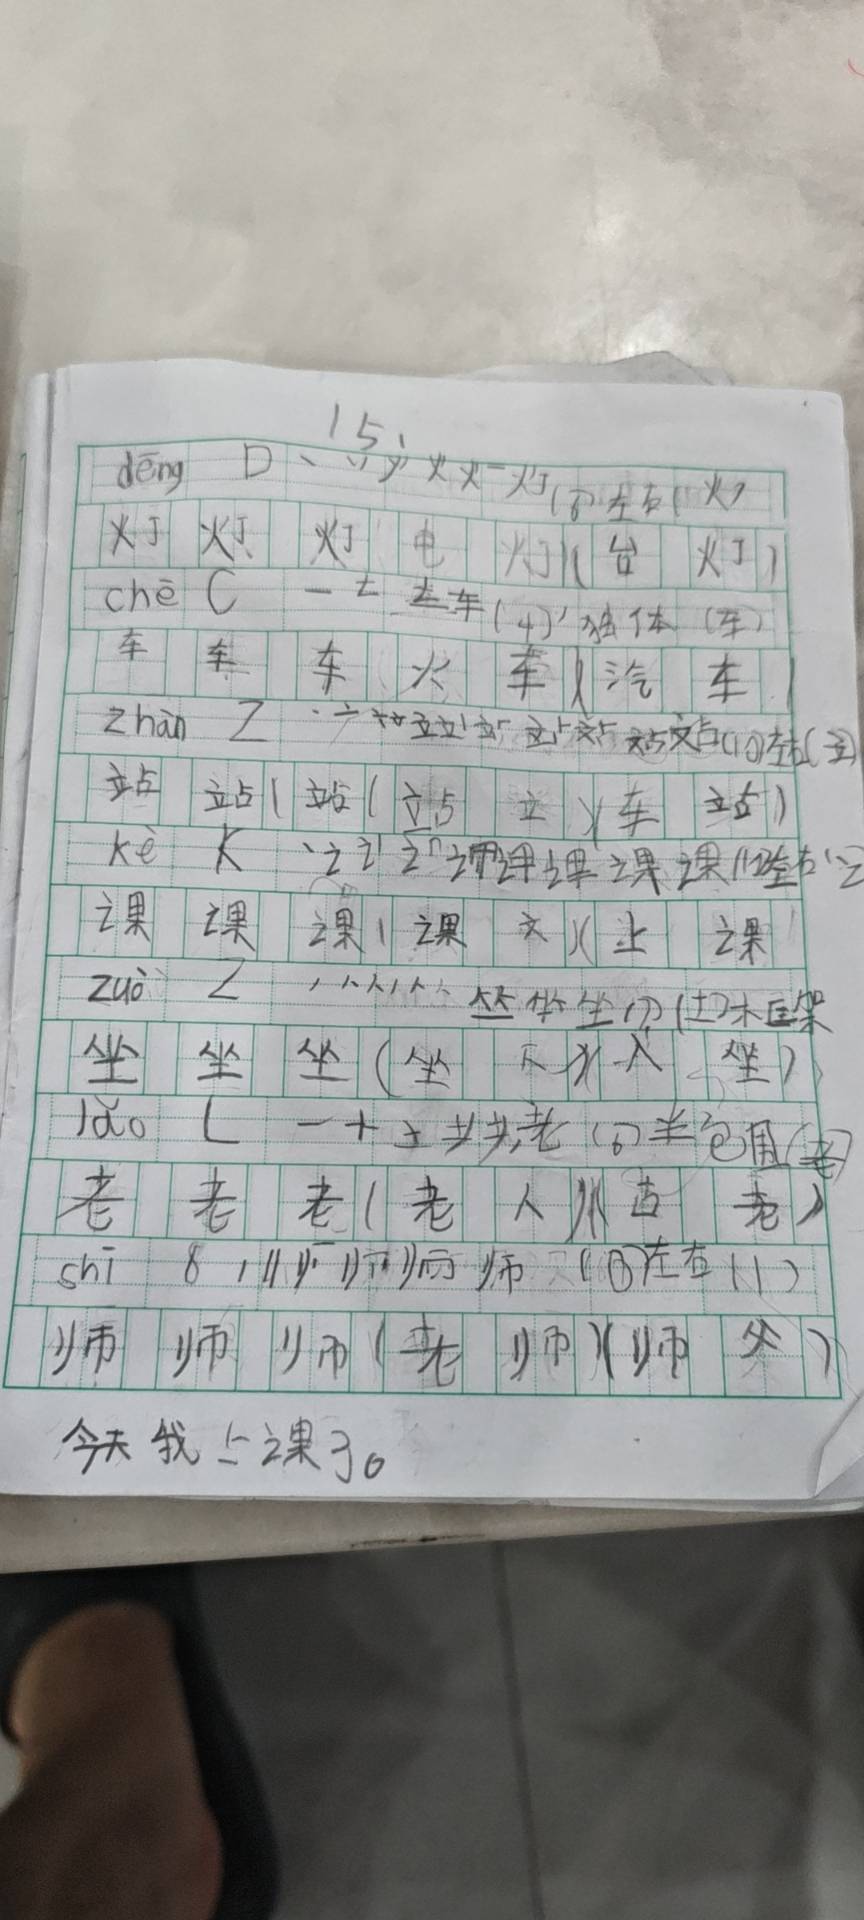 15
dēng D 丶 丷 火 火 灯 (6) 左右 (火)
灯 灯 灯 (电 灯)(台 灯)
chē C 一 𠂇 车 (4) 独体 (车)
车 车 车 (火 车)(汽 车)
zhàn Z 丶 亠 立 站 站 站 (10) 左右 (立)
站 站 (站 (站 立)(车 站)
kè K 丶 讠 课 课 课 课 左右 讠
课 课 课 (课 文)(上 课
zuò Z 丿 人 坐 坐 (7) (土) 木框架
坐 坐 坐 (坐 下)(入 坐)
lǎo L 一 十 土 耂 老 (6) 半包围 (老)
老 老 老 (老 人)(古 老)
shī 8 丨 刂 师 师 师 (6) 左右 (丨)
师 师 师 (老 师)(师 父)
今天我上课了。